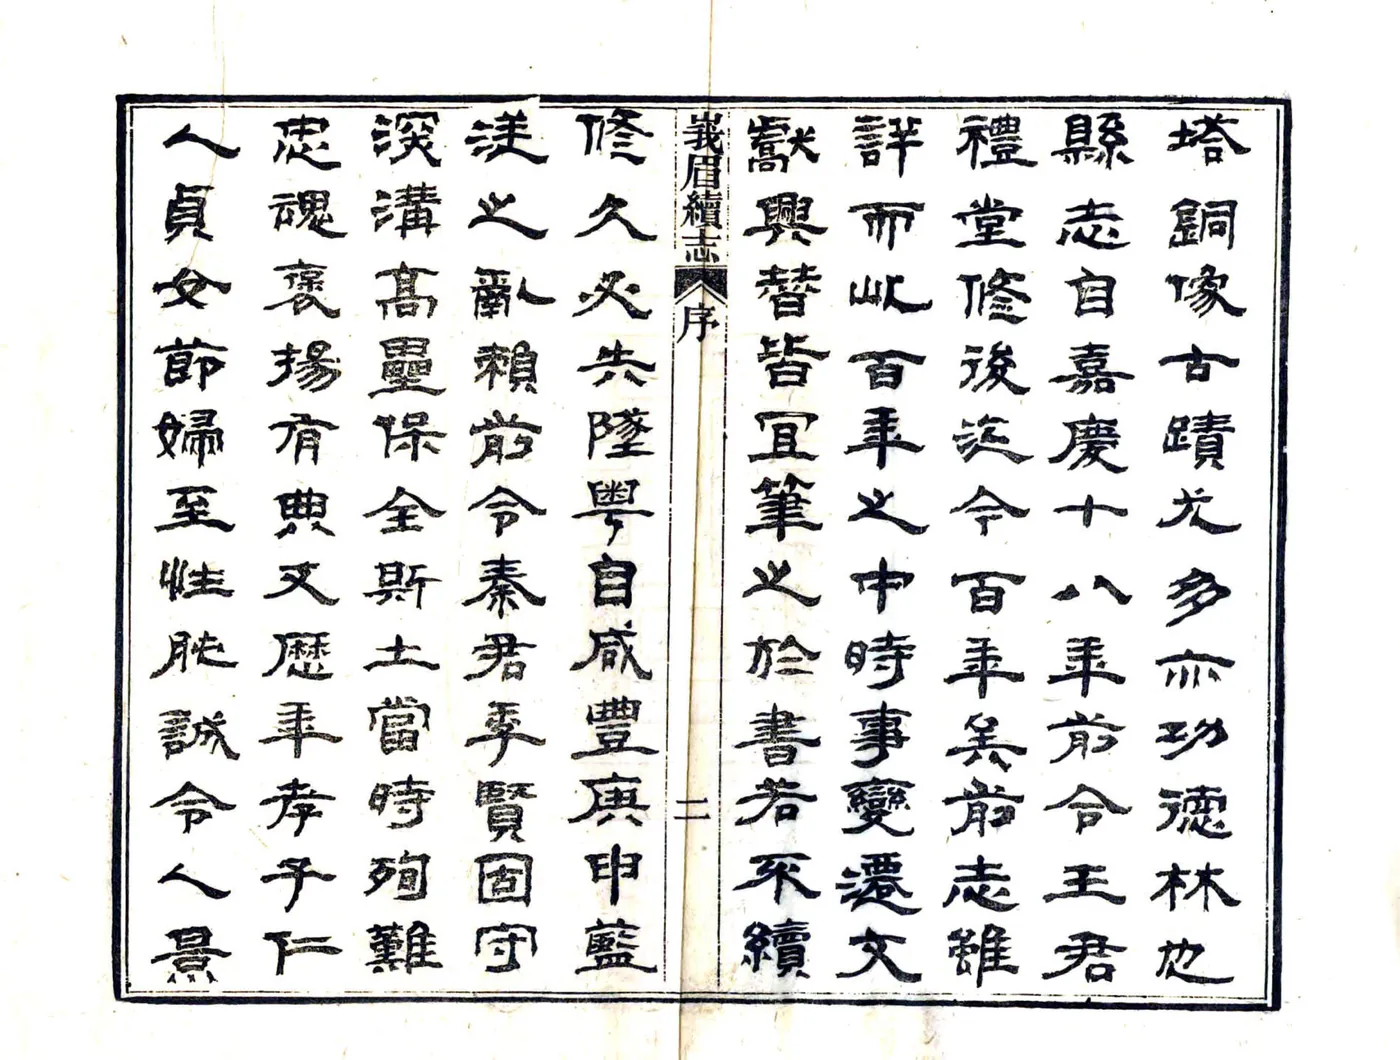 塔銅像古蹟尤多亦功德林也
縣志自嘉慶十八年前令王君
禮堂修後迄今百年矣前志雖
詳而此百年之中時事變遷文
獻興替皆宜筆之於書若不續
峩眉續志
序
二
修久必失墜粵自咸豐庚申藍
逆之亂賴前令秦君季賢固守
深溝高壘保全斯土當時殉難
忠魂褒揚有典又歷年孝子仁
人貞女節婦至性肫誠令人景